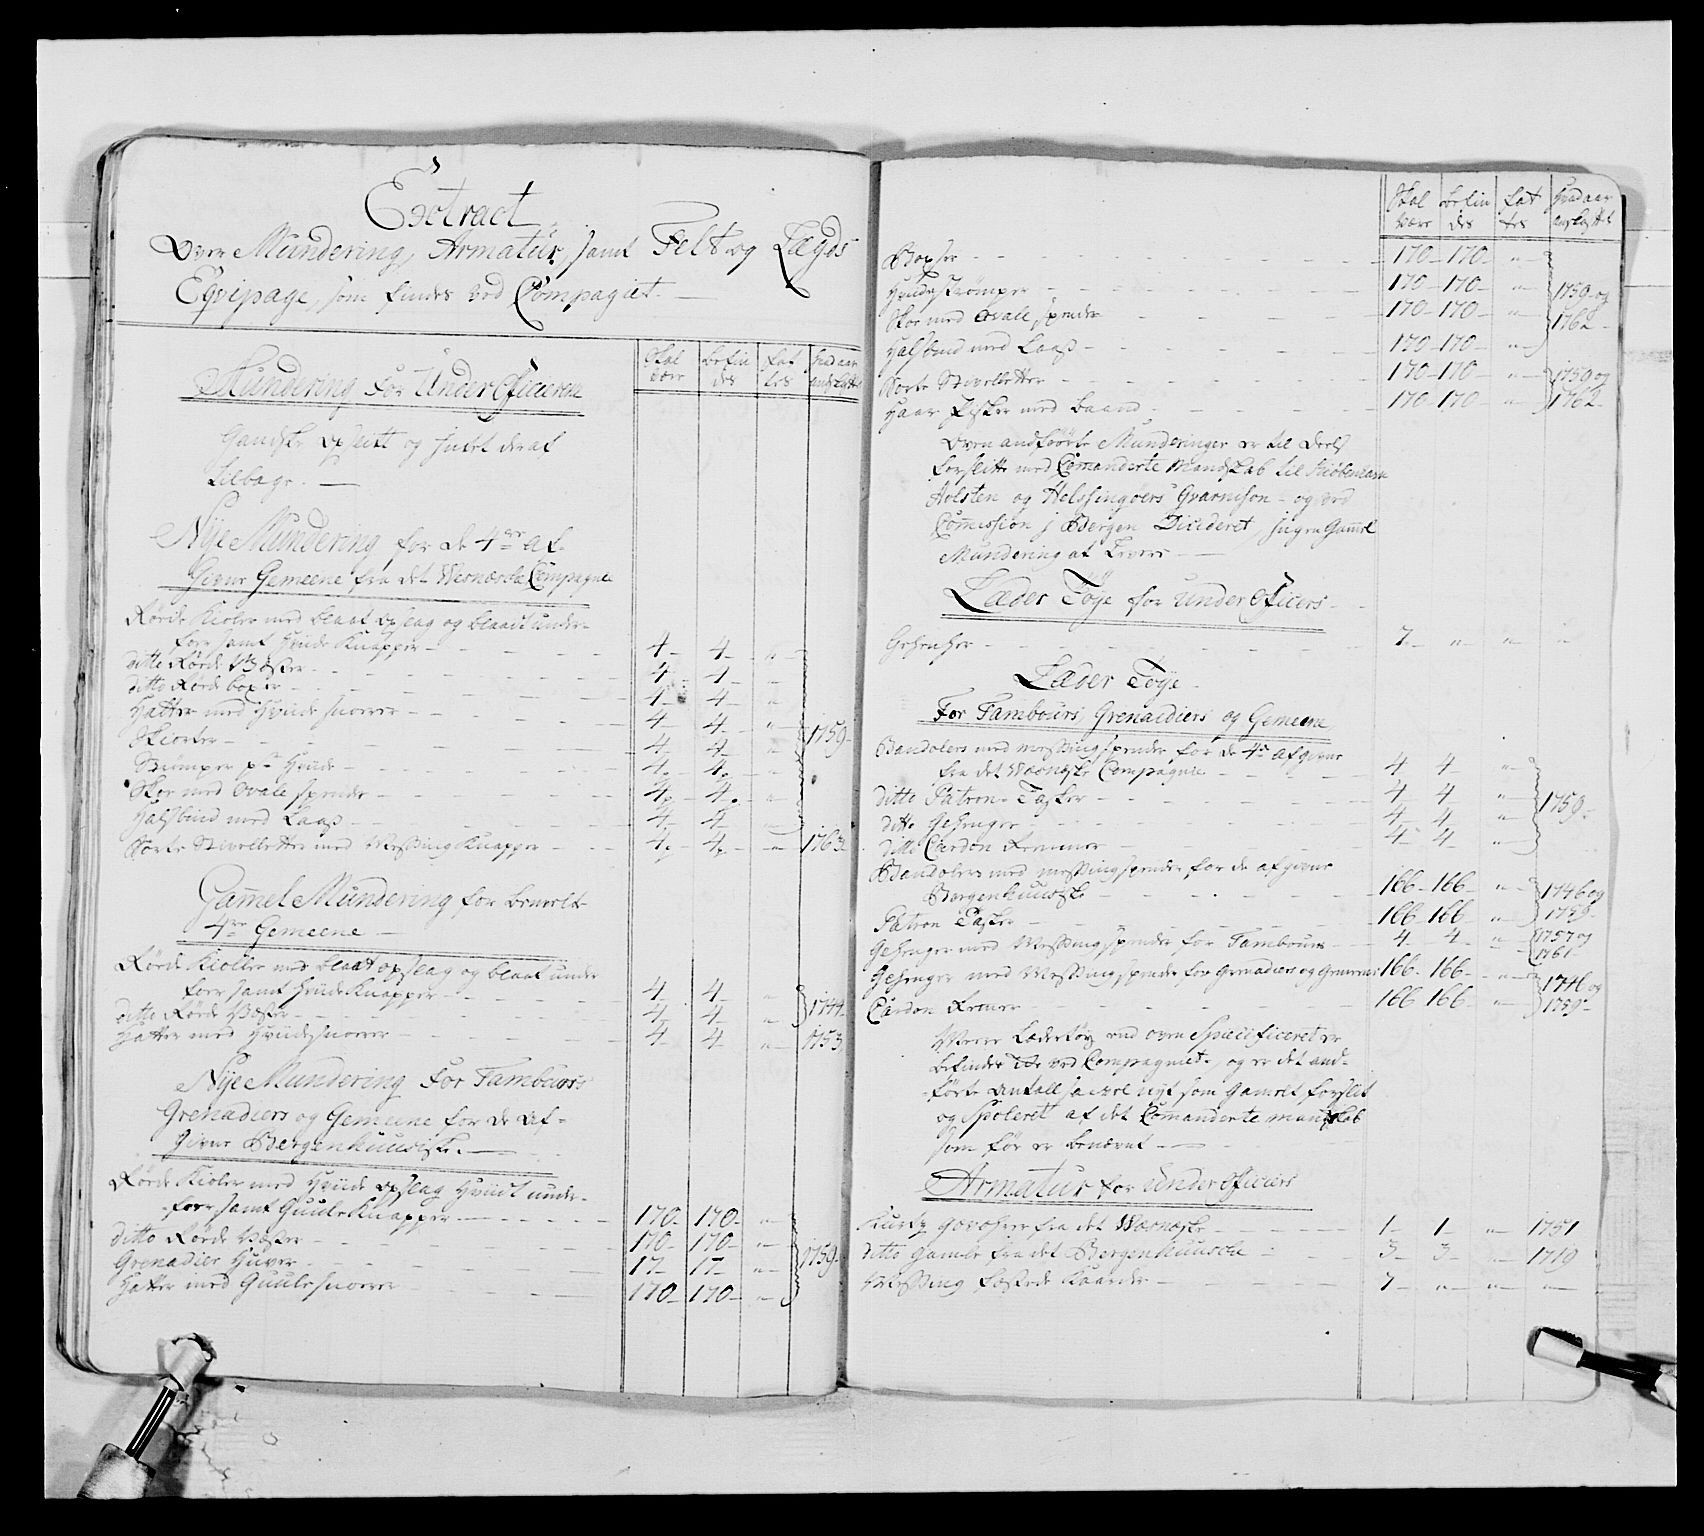 Extract
Over Mundering, Armatur, samt Felt og Lægds
Eqvipage, som findes ved Compagniet.
Skal være | befindes | Fattes | hvad aar anskaffet
Mundering for Under Officierene
Gandske opslitt og Intet deraf
tilbage.
Nÿe Mundering for de 4re af-
givne Gemeene fra det Wernæske Compagnie
Rørde Kioler med blaat opslag og blaat under-
foer samt Hvide Knapper 4 4 "
ditto Rørde Væster 4 4 "
ditto Rørde boxer 4 4 "
Hatter med Hvide snorer 4 4 "
Skiorter 4 4 " 1759
Strömper pr Hvide 4 4 "
Skoe med Ovale spender 4 4 "
Halsbind med Laas 4 4 "
Sorte Stivelletter med Messing Knapper 4 4 " 1763
Gamel Mundering for bemelte
4re Gemeene
Rørde Kioller med blaat opslag og blaat under
foer samt Hvide Knapper 4 4 "
ditto Rørde Væster 4 4 " 1744
Hatter med Hvide snorer 4 4 " 1753
Nÿe Mundering for Tambours
Grenadiers og Gemeene for de af-
givne Bergenhuusiske.
Rørde Kioler med Hvide opslag Hvidt under-
foer samt Guule Knapper 170 170 "
ditto Rørde Væster 170 170 "
Grenadier Huver 17 17 " 1759
Hatter med Guule snorer 170 170 "
Skal være | befindes | Fattes | Hvad aar anskaffet
Boxser 170 170 "
Hvide strömper 170 170 " 1759 og
Skoe med Ovale spender 170 170 " 1762
Halsbind med Laas 170 170 "
Sorte Stivelletter 170 170 " 1759 og
Haar Pisker med baand 170 170 " 1762
Oven andførte Munderinger er til deels
forslitt med Comanderte Mandskab til Kiøbenhavn
Holsten og Helssingøers Gvarnison og ved
Comission i Bergen Dicideret, Ingen Gamel
Mundering at levere
Læder Töÿe for Under Officers
Gehenger 7 " " "
Læder Töÿe
For Tambours, Grenaediers og Gemeene
Bandolers med messing spender for de 4re afgivne
fra det Wernæske Compagnie 4 4 "
ditto Patron-Tasker 4 4 " 1759
ditto Gehenger 4 4 "
ditto Cardon Remmer 4 4 "
Bandolers med messing spender for de afgivne
Bergenhuusiske 166 166 " 1746 og
Patron Tasker 166 166 " 1759
Gehenger med Messing spender for Tambours 4 4 " 1757 og 1761
Gehenger med Messing spender for Grenadiers og Gemeene 166 166 " 1746 og
Cardon Remer 166 166 " 1759
Meere Lædertøy end oven Specificeret er
befindes ved Compagniet, og er det and-
førte Antall saa vel nyt som Gamelt forslit
og Spoleret af det Comanderte mandskab
som før er benævnt
Armatur for Under Officiers
Kurtz gevehrer fra det Wernæske 1 1 " 1751
ditto gamle fra det Bergenhuusiske 3 3 " 1719
Messing fæstede Kaarder 7 " " "